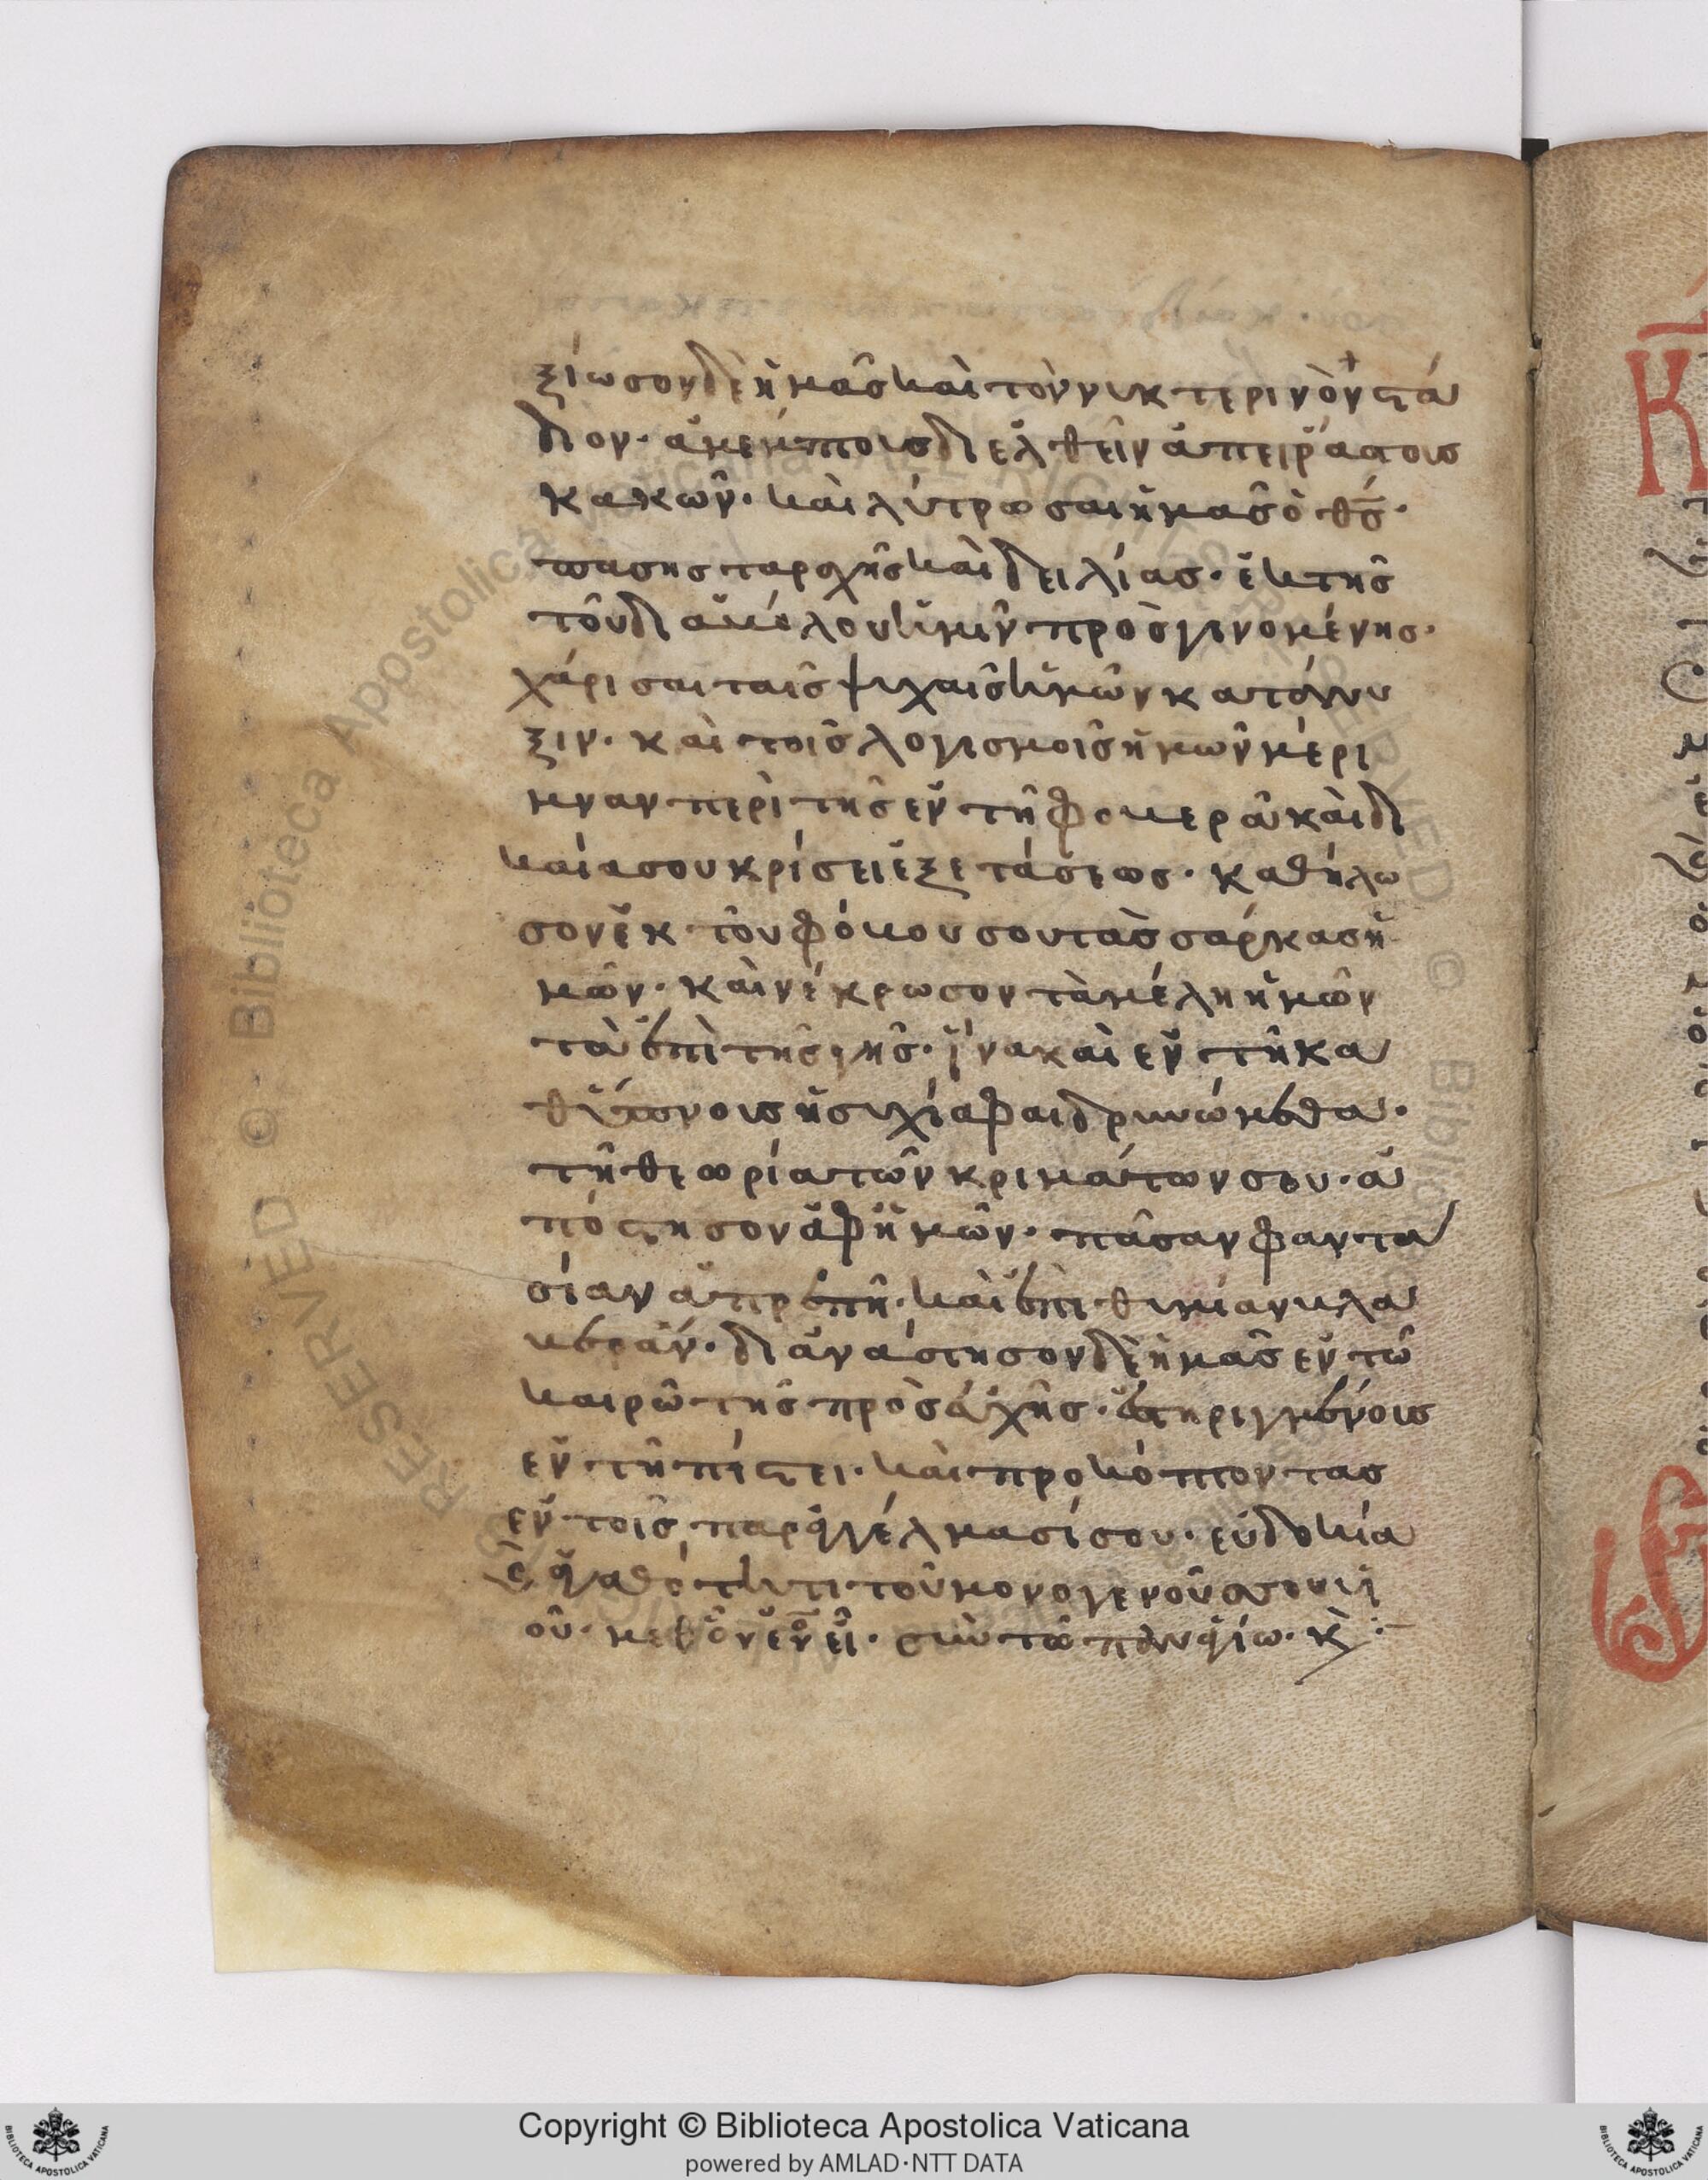 ξίωσον δὲ ἡμᾶς καὶ τὸν νυκτερινὸν στά
διον· ἀμέμπτοις διελθεῖν ἀπειράστοις
κακῶν· καὶ λύτρωσαι ἡμᾶς ὁ θς·
πάσης ταραχῆς καὶ δειλίας· ἐκ τῆς
τοῦ διαβόλου ἡμῖν προσγινομένης·
χάρισαι ταῖς ψυχαῖς ἡμῶν κατάνυ
ξιν· καὶ τοῖς λογισμοῖς ἡμῶν μέρι
μναν περὶ τῆς ἐν τῇ φοβερᾷ καὶ δι
καία σου κρίσει ἐξετάσεως· καθήλω
σον ἐκ τοῦ φόβου σου τὰς σάρκας ἡ
μῶν· καὶ νέκρωσον τὰ μέλη ἡμῶν
τὰ ἐπὶ τῆς γῆς· ἵνα καὶ ἐν τῇ κα
θύπνοις ἡσυχία φαιδρυνώμεθα·
τῇ θεωρία τῶν κριμάτων σου· ἀ
πόστησον ἀφ ἡμῶν· πᾶσαν φαντα
σίαν ἀπρεπῆ· καὶ ἐπιθυμίαν βλα
βεράν· διανάστησον δὲ ἡμᾶς ἐν τῷ
καιρῷ τῆς προσευχῆς· ἐστηριγμένους
ἐν τῇ πίστει· καὶ προκόπτοντας
ἐν τοῖς παραγγέλμασί σου· εὐδοκία
ἀγαθότητι τοῦ μονογενοῦς σου υἱ
οῦ· μεθ οὗ εὐλογητὸς εἶ· σὺν τῷ παναγίῳ· κ
Copyright © Biblioteca Apostolica Vaticana
powered by AMLAD·NTT DATA